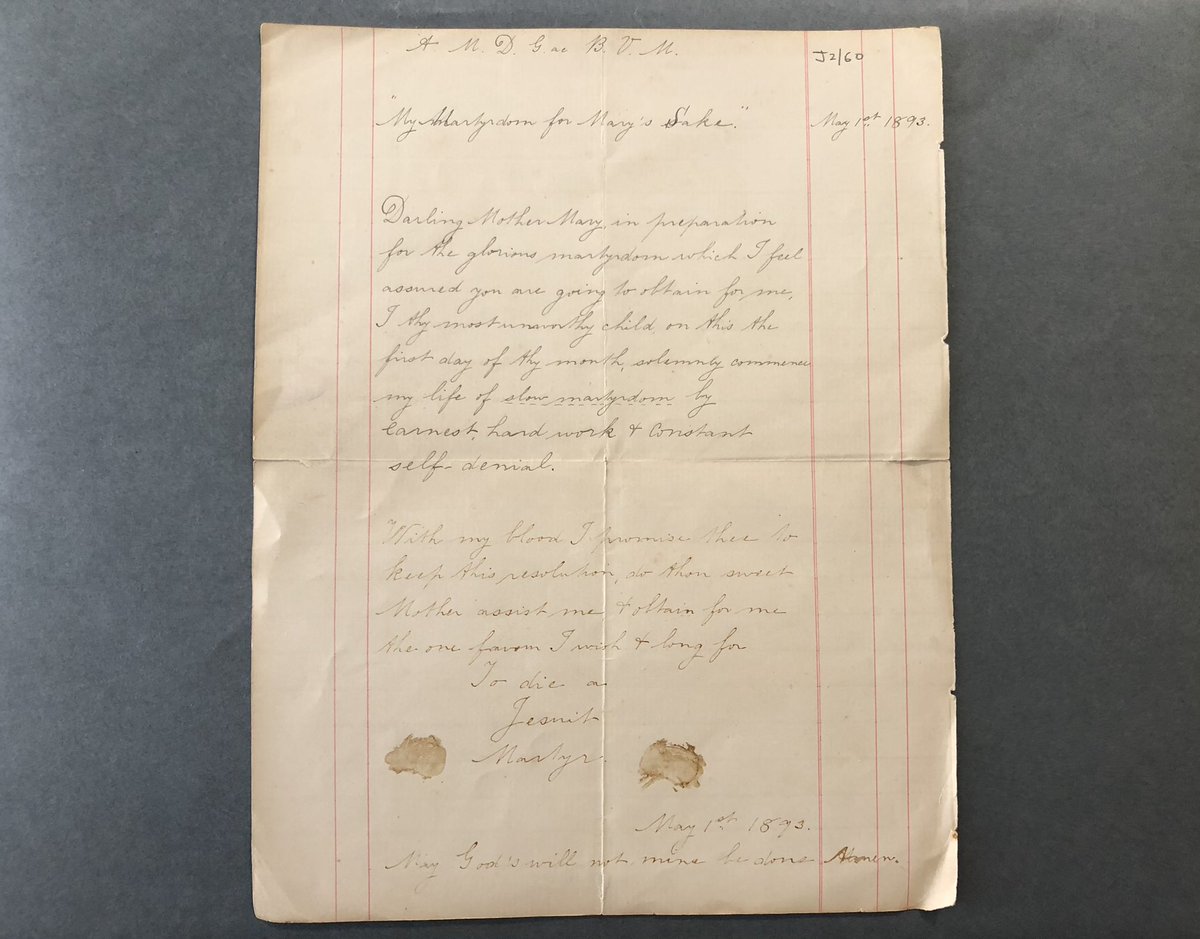 A. M. D. G. ac B. V. M.
J2/60
"My Martyrdom for Mary's Sake."
May 1st 1893.
Darling Mother Mary, in preparation
for the glorious martyrdom which I feel
assured you are going to obtain for me,
I thy most unworthy child, on this the
first day of thy month, solemnly commence
my life of slow martyrdom by
earnest, hard work & constant
self-denial.
With my blood I promise thee to
keep this resolution, do thou sweet
Mother assist me & obtain for me
the one favour I wish & long for
To die a
Jesuit
Martyr.
May 1st 1893.
May God's will not mine be done Amen.